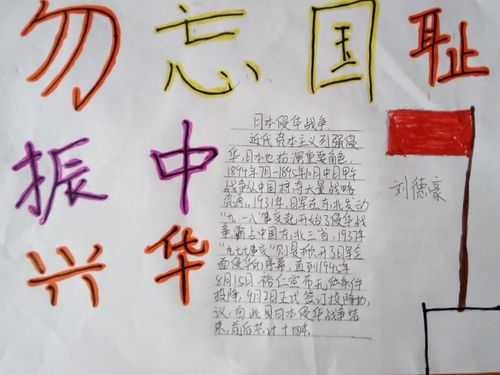 勿忘国耻
振中
兴华
日本侵华战争
近代资本主义列强侵
华,日本也扮演重要角色,
1894年7月-1895年4月中日甲午
战争从中国掠夺大量战略
资源。1931年,日军在东北发动
"九一八"事变起开始了侵华战
争,霸占中国东北三省,1937年
"七七事变"则是掀开了日军全
面侵华的序幕,直到1945年
8月15日裕仁宣布无条件
投降,9月2日正式签订投降协
议,向此日本侵华战争结
束,前后共计十四年
刘德豪